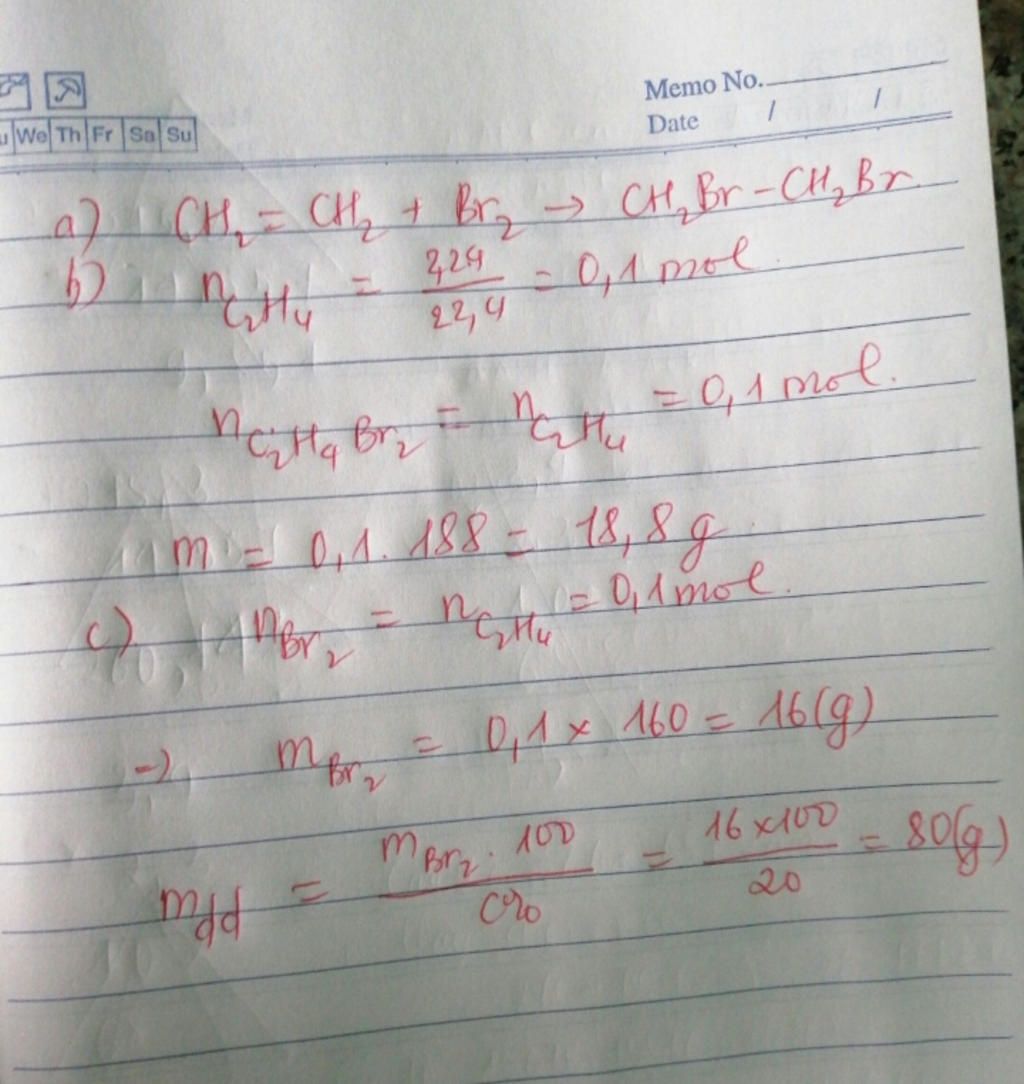 Memo No.
Date / /
We Th Fr Sa Su
a) CH₂ = CH₂ + Br₂ → CH₂Br - CH₂Br
b) n_C₂H₄ = 2,24/22,4 = 0,1 mol
n_C₂H₄Br₂ = n_C₂H₄ = 0,1 mol.
m = 0,1. 188 = 18,8 g
c) n_Br₂ = n_C₂H₄ = 0,1 mol.
=) m_Br₂ = 0,1 x 160 = 16(g)
m_dd = m_Br₂ . 100/C% = 16 x 100/20 = 80(g)